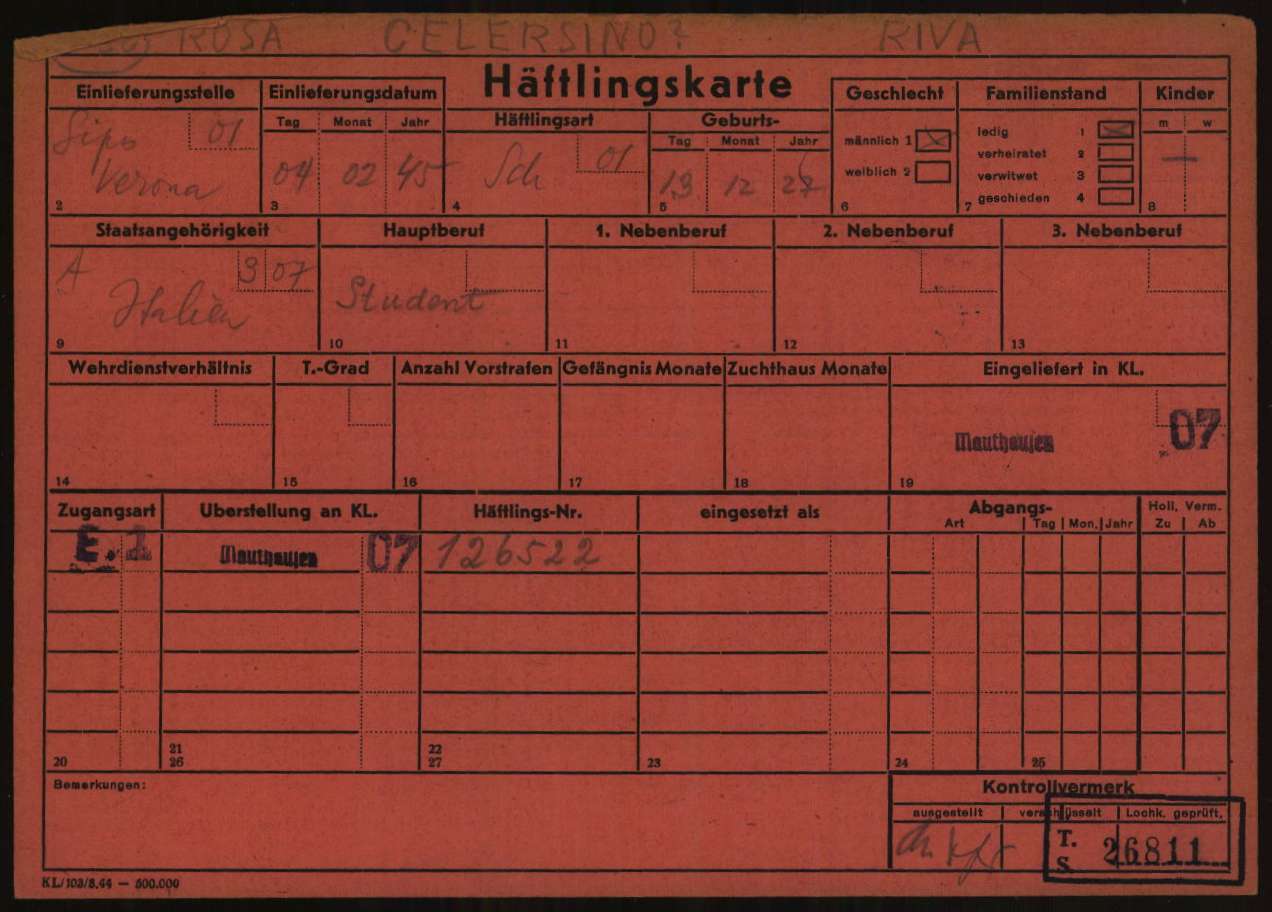 ROSA CELERSINO? RIVA
Häftlingskarte
Einlieferungsstelle
Sipo 01
Verona
2
Einlieferungsdatum
Tag Monat Jahr
04 02 45
3
Häftlingsart
Sch 01
4
Geburts-
Tag Monat Jahr
13 12 27
5
Geschlecht
männlich 1
weiblich 2
6
Familienstand
ledig 1
verheiratet 2
verwitwet 3
geschieden 4
7
Kinder
m w
—
8
Staatsangehörigkeit
A 3 07
Italien
9
Hauptberuf
Student
10
1. Nebenberuf
11
2. Nebenberuf
12
3. Nebenberuf
13
Wehrdienstverhältnis
14
T.-Grad
15
Anzahl Vorstrafen
16
Gefängnis Monate
17
Zuchthaus Monate
18
Eingeliefert in KL.
Mauthausen 07
19
Zugangsart Überstellung an KL. Häftlings-Nr. eingesetzt als Abgangs- Holl. Verm.
Art Tag Mon. Jahr Zu Ab
E. 1 Mauthausen 07 126522
20 21 22 23 24 25
26 27
Bemerkungen:
Kontrollvermerk
ausgestellt verschlüsselt Lochk. geprüft.
T. 26811
S.
KL/103/8.44 — 500.000